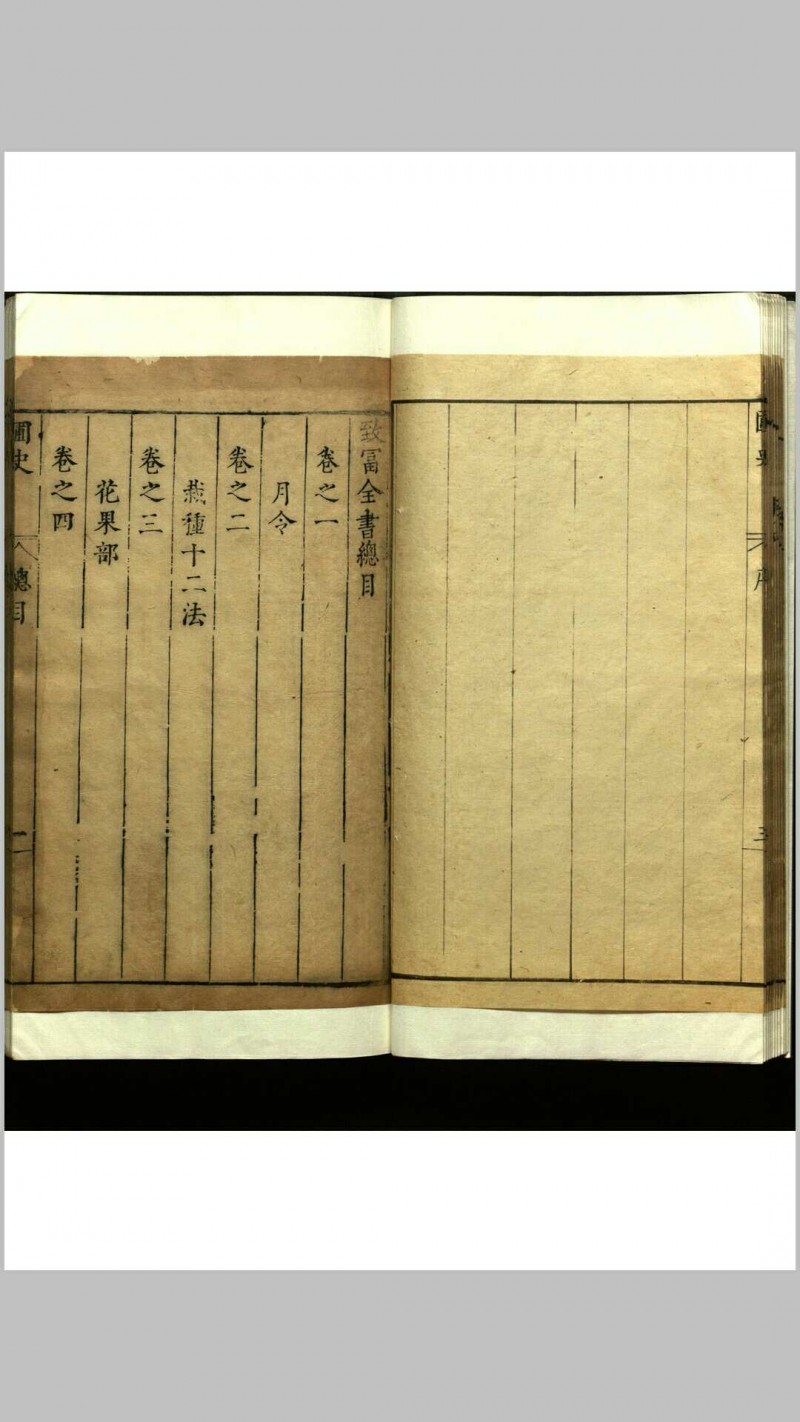 致富全書總目
卷之一
月令
卷之二
栽種十二法
卷之三
花果部
卷之四
圃史
總目
序
三